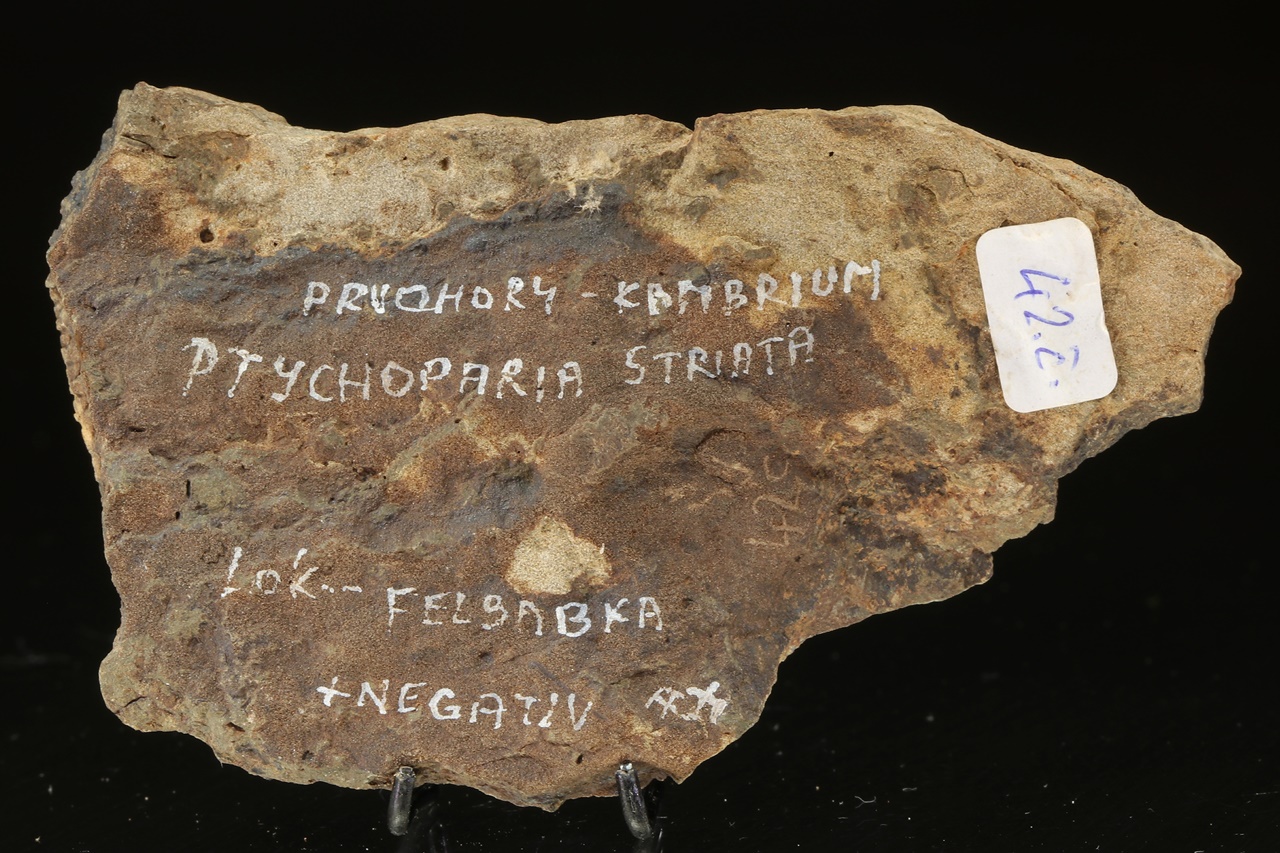 PRVOHORY - KAMBRIUM
PTYCHOPARIA STRIATA
Lok.- FELBABKA
+NEGATIV
42.C.
42c